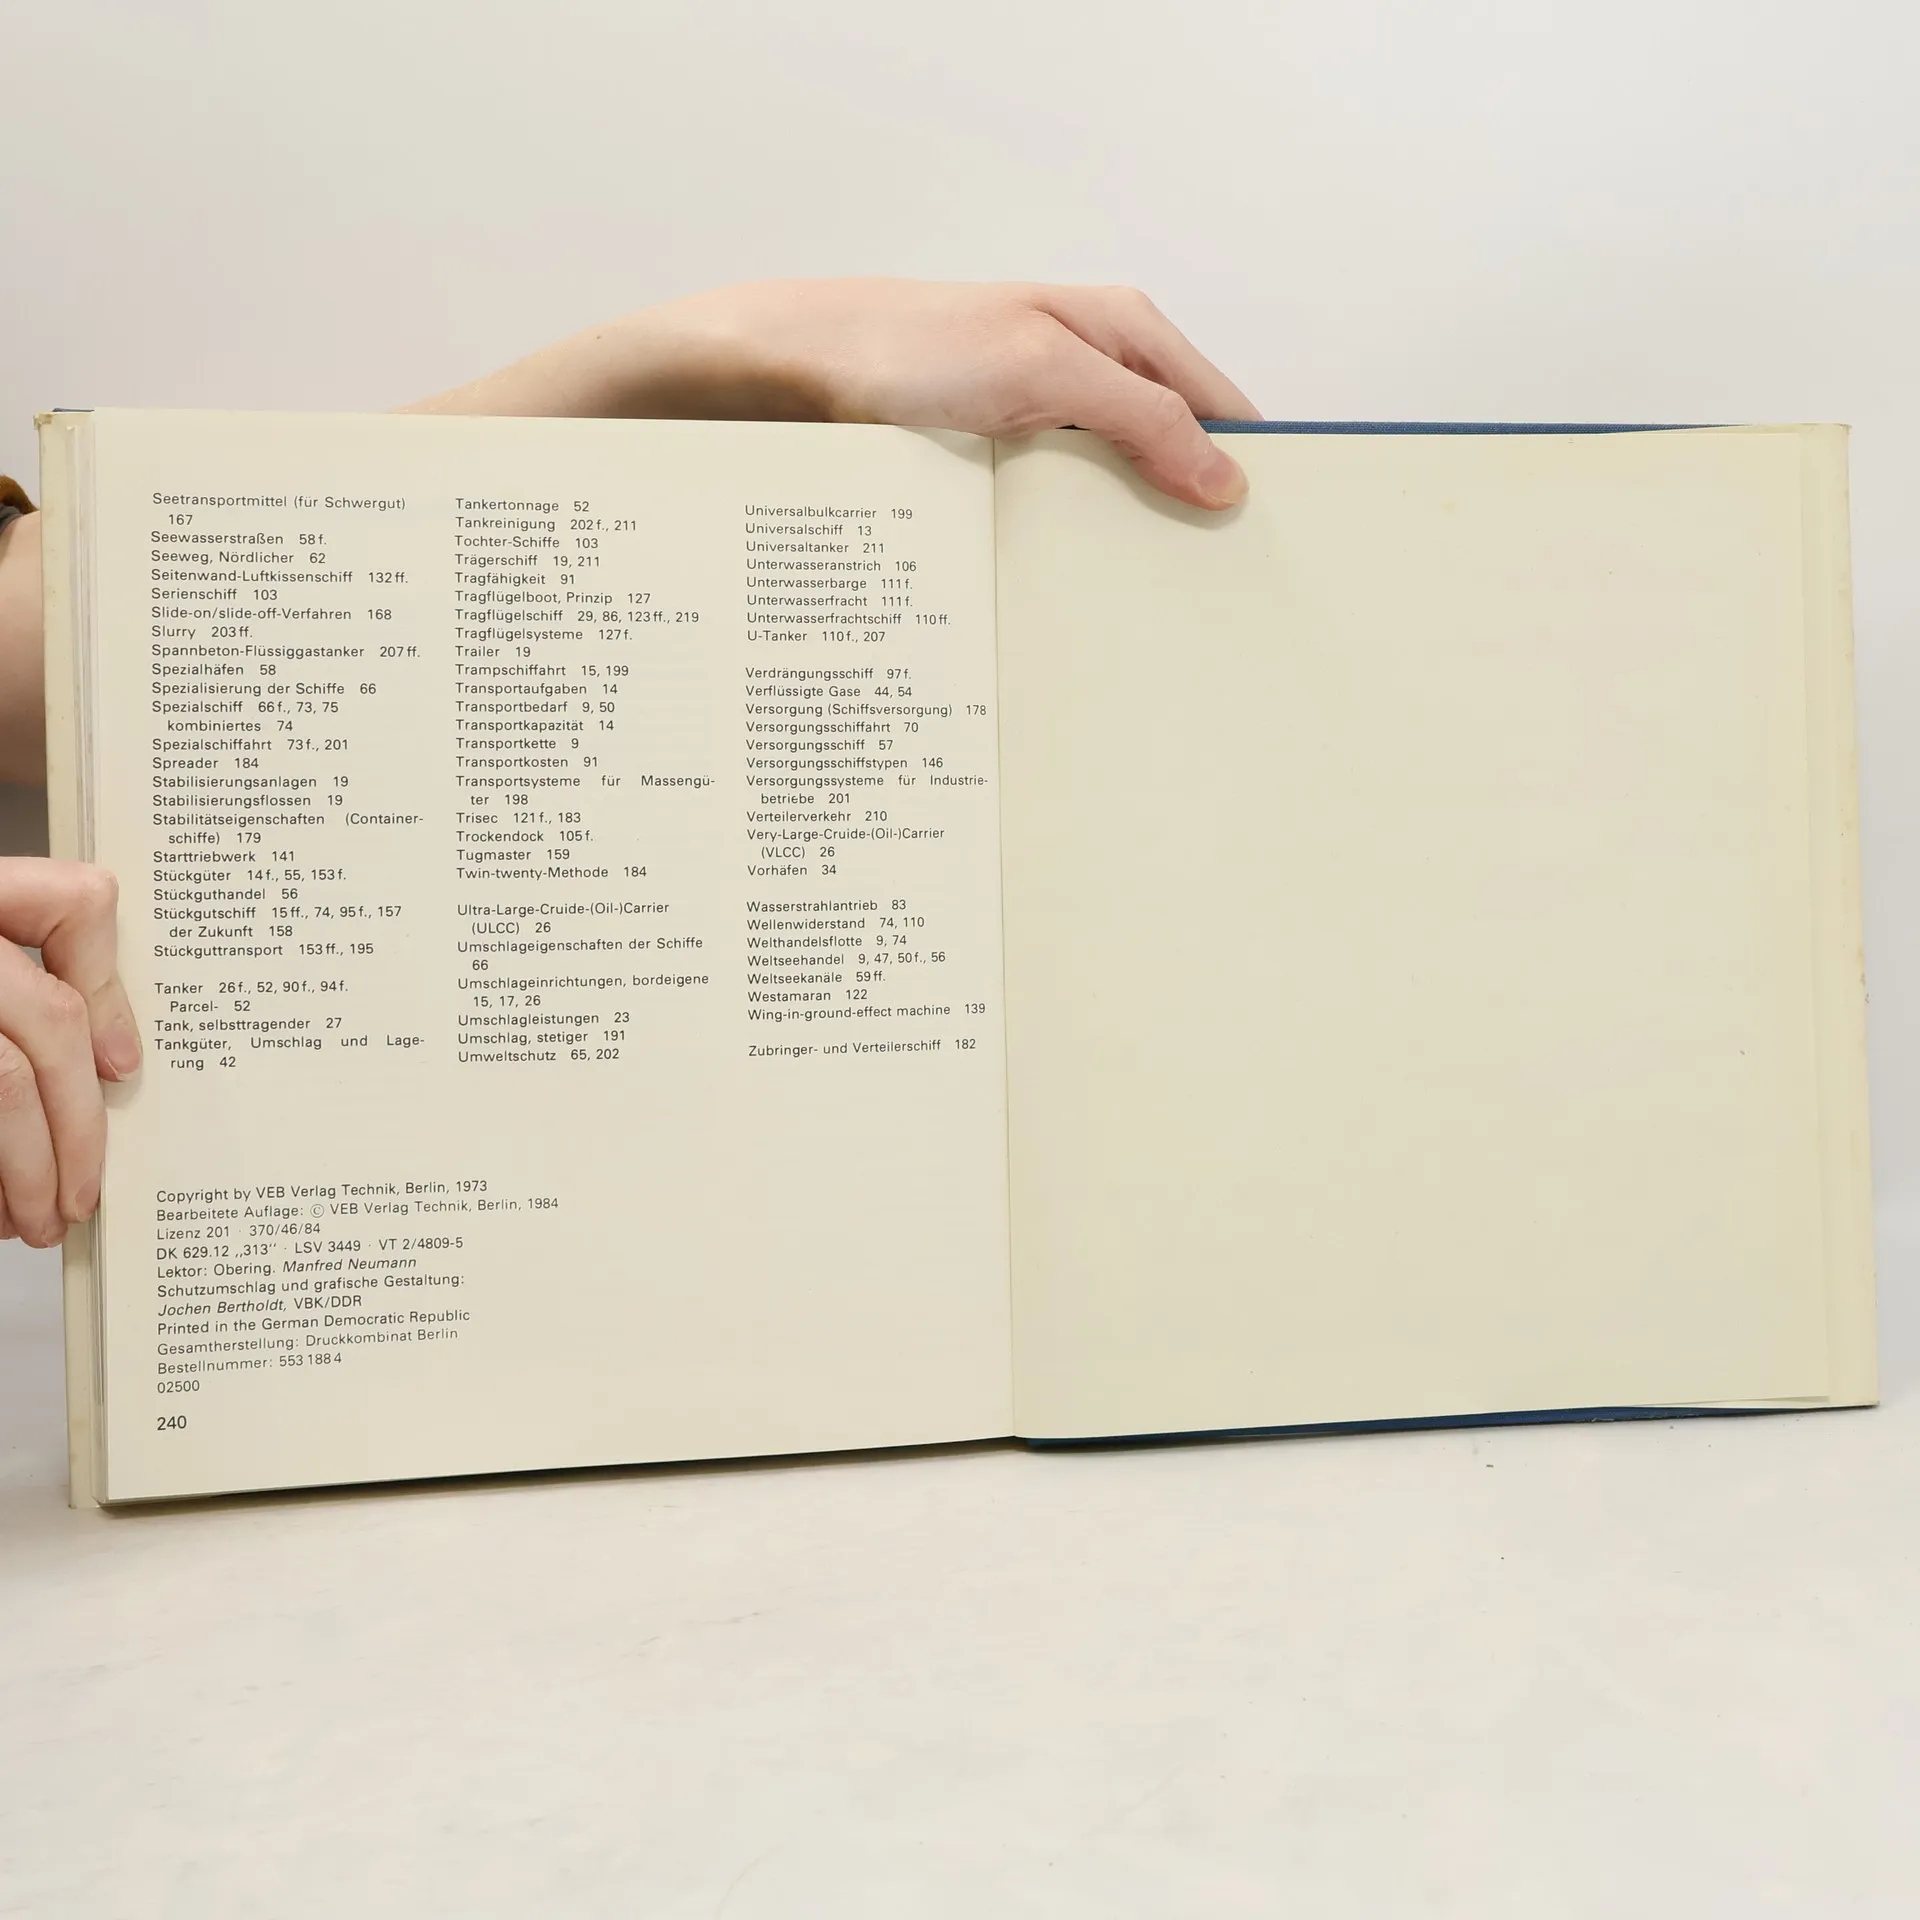 Seetransportmittel (für Schwergut)
167
Seewasserstraßen 58f.
Seeweg, Nördlicher 62
Seitenwand-Luftkissenschiff 132ff.
Serienschiff 103
Slide-on/slide-off-Verfahren 168
Slurry 203ff.
Spannbeton-Flüssiggastanker 207ff.
Spezialhäfen 58
Spezialisierung der Schiffe 66
Spezialschiff 66f., 73, 75
kombiniertes 74
Spezialschiffahrt 73f., 201
Spreader 184
Stabilisierungsanlagen 19
Stabilisierungsflossen 19
Stabilitätseigenschaften (Container-
schiffe) 179
Starttriebwerk 141
Stückgüter 14f., 55, 153f.
Stückguthandel 56
Stückgutschiff 15ff., 74, 95f., 157
der Zukunft 158
Stückguttransport 153ff., 195
Tanker 26f., 52, 90f., 94f.
Parcel- 52
Tank, selbsttragender 27
Tankgüter, Umschlag und Lage-
rung 42
Tankertonnage 52
Tankreinigung 202f., 211
Tochter-Schiffe 103
Trägerschiff 19, 211
Tragfähigkeit 91
Tragflügelboot, Prinzip 127
Tragflügelschiff 29, 86, 123ff., 219
Tragflügelsysteme 127f.
Trailer 19
Trampschiffahrt 15, 199
Transportaufgaben 14
Transportbedarf 9, 50
Transportkapazität 14
Transportkette 9
Transportkosten 91
Transportsysteme für Massengü-
ter 198
Trisec 121f., 183
Trockendock 105f.
Tugmaster 159
Twin-twenty-Methode 184
Ultra-Large-Cruide-(Oil-)Carrier
(ULCC) 26
Umschlageigenschaften der Schiffe
66
Umschlageinrichtungen, bordeigene
15, 17, 26
Umschlagleistungen 23
Umschlag, stetiger 191
Umweltschutz 65, 202
Universalbulkcarrier 199
Universalschiff 13
Universaltanker 211
Unterwasseranstrich 106
Unterwasserbarge 111f.
Unterwasserfracht 111f.
Unterwasserfrachtschiff 110ff.
U-Tanker 110f., 207
Verdrängungsschiff 97f.
Verflüssigte Gase 44, 54
Versorgung (Schiffsversorgung) 178
Versorgungsschiffahrt 70
Versorgungsschiff 57
Versorgungsschiffstypen 146
Versorgungssysteme für Industrie-
betriebe 201
Verteilerverkehr 210
Very-Large-Cruide-(Oil-)Carrier
(VLCC) 26
Vorhäfen 34
Wasserstrahlantrieb 83
Wellenwiderstand 74, 110
Welthandelsflotte 9, 74
Weltseehandel 9, 47, 50f., 56
Weltseekanäle 59ff.
Westamaran 122
Wing-in-ground-effect machine 139
Zubringer- und Verteilerschiff 182
Copyright by VEB Verlag Technik, Berlin, 1973
Bearbeitete Auflage: © VEB Verlag Technik, Berlin, 1984
Lizenz 201 · 370/46/84
DK 629.12 ,,313'' · LSV 3449 · VT 2/4809-5
Lektor: Obering. Manfred Neumann
Schutzumschlag und grafische Gestaltung:
Jochen Bertholdt, VBK/DDR
Printed in the German Democratic Republic
Gesamtherstellung: Druckkombinat Berlin
Bestellnummer: 553 188 4
02500
240